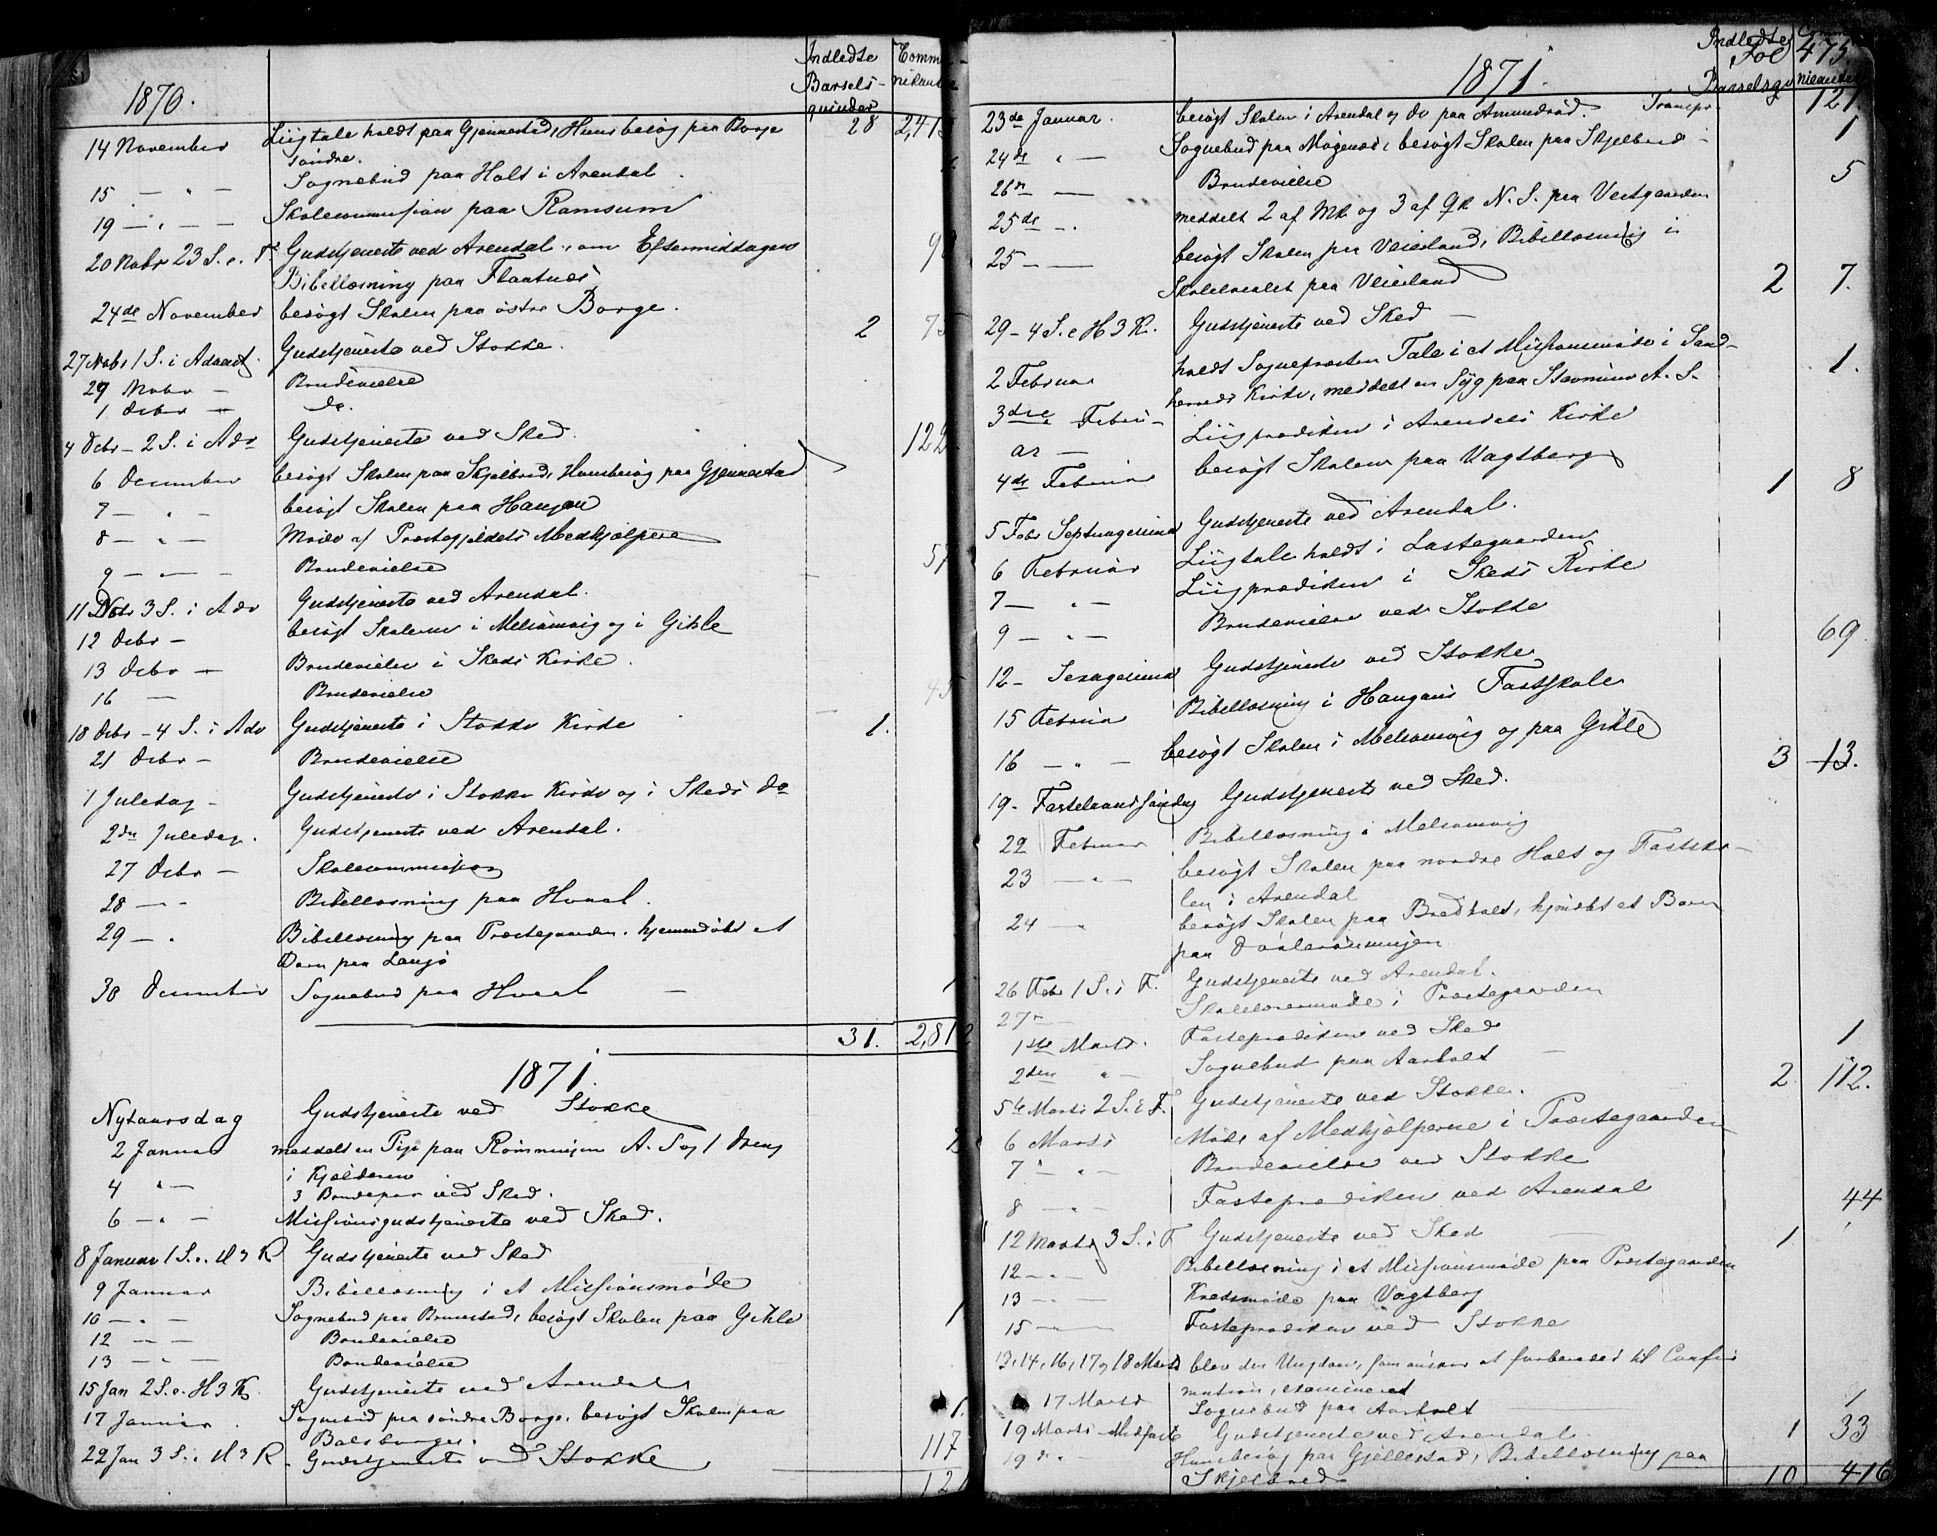 1870.
Indledte Barsels-qvinder
Comm nikant
14 November Liigtale holdt paa Gjennestad, Huusbesøg paa Borge 28 2,415
søndre.
15 — " — Sognebud paa Holt i Arendal.
19 — " — Skolecommission paa Ramsum
20 Nobr 23 S. e. T. Gudstjeneste ved Arendal, om Eftermiddagen
Bibellæsning paa Flaatnes
24de November besøgt Skolen paa østre Borge.
27 Nobr 1 S. i Advent Gudstjeneste ved Stokke. 2 75
29 Nobr — Brudevielse
1 Debr — do.
4 Debr — 2 S. i Adv Gudstjeneste ved Sked. 122
6 December besøgt Skolen paa Skjelbred, Huusbesøg paa Gjennestad
7 — " — besøgt Skolen paa Haugan
8 — " — Møde af Præstegjeldets Medhjælpere
9 — " — Brudevielse
11 Debr 3 S. i Adv Gudstjeneste ved Arendal.
12 Debr — besøgt Skolerne i Melsomvig og i Gihle
13 Debr — Brudevielse i Skeds Kirke.
16 — Brudevielse
18 Debr — 4 S. i Adv Gudstjeneste i Stokke Kirke 1. 45
21 Debr — Brudevielse
1 Juledag — Gudstjeneste i Stokke Kirke og i Skeds do
2den Juledag. Gudstjeneste ved Arendal.
27 Debr — Skolecommission
28 — " Bibellæsning paa Hvaal.
29 — " Bibellæsning paa Præstegaarden. hjemmedøbt et
Barn paa Langø
30 December Sognebud paa Hvaal — 1
31. 2,812
1871.
Nytaarsdag Gudstjeneste ved Stokke
2 Januar meddelt en Pige paa Rømmingen A. S og 1 Dreng 2
i Kjælderen
4 " — 3 Brudepar ved Sked.
6 — " — Missionsgudstjeneste ved Sked.
8 Januar 1 S. e. H 3 K Gudstjeneste ved Sked
9 Januar Bibellæsning i et Missionsmøde
10 — " — Sognebud paa Brunstad, besøgt Skolen paa Gihle 1
12 — — Brudevielse
13 — " — Brudevielse
15 Jan 2 S. e. H 3 K. Gudstjeneste ved Arendal
17 Januar. Sognebud paa søndre Borge. besøgt Skolen paa 1.
Bolsborge.
22 Jan 3 S. e. H 3 K. Gudstjeneste ved Stokke 117
12
1871.
Indledte Barselsqv
Comm nicanter
Fol 475.
Transp. 121
23de Januar. besøgt Skolen i Arendal og do paa Amundrød.
24de " — Sognebud paa Møgenes, besøgt Skolen paa Skjelbred — 1
26de — Brudevielse
25de — " meddelt 2 af Mk og 3 af Qk N. S. paa Vestgaarden 5
25 — — besøgt Skolen paa Veierland, Bibellæsning i
Skolelocalet paa Veierland
29 — 4 S. e H 3 K. Gudstjeneste ved Sked — 2 7.
2 Februar holdt Sognepræsten Tale i et Missionsmøde i Sand-
herreds Kirke, meddelt en Syg paa Stavnum A. S. 1.
3die Febru-
ar — Liigprædiken i Arendals Kirke
4de Februar besøgt Skolen paa Vagtberg
5 Febr Septuagesima Gudstjeneste ved Arendal. 1 8
6 Februar Liigtale holdt i Lastegaarden
7 — " — Liigprædiken i Skeds Kirke
9 — " — Brudevielse ved Stokke
12 — Sexagesima Gudstjeneste ved Stokke 69
15 Februar Bibellæsning i Haugans Fastskole
16 — " — besøgt Skolen i Melsomvig og paa Gihle
19 — Fastelavnssøndag Gudstjeneste ved Sked. 3 13.
22 Februar Bibellæsning i Melsomvig
23 — " — besøgt Skolen paa nordre Holt og Fastsko-
len i Arendal
24 — " besøgt Skolen paa Bredholt, hjmdbt et Barn
paa Dalerønningen
26 Febr 1 S. i F. Gudstjeneste ved Arendal.
27 — Skolelærermøde i Præstegaarden
1ste Marts. Fasteprædiken ved Sked
2den " — Sognebud paa Aarholt — 1
5te Marts 2 S. i F. Gudstjeneste ved Stokke. 2. 112.
6 Marts Møde af Medhjælperne i Præstegaarden
7 " — Brudevielse ved Stokke
8 — " — Fasteprædiken ved Arendal
12 Marts 3 S. i F Gudstjeneste ved Sked 1 44
12 — " — Bibellæsning i et Missionsmøde paa Præstegaarden
13 — " — Kredsmøde paa Vagtberg
15 — " — Fasteprædiken ved Stokke
13, 14, 16, 17 og 18 Marts blev den Ungdom, som ønsker at forberedes til Confir
mation, examineret
17 Marts Sognebud paa Aarholt 1
19 Marts Midfaste Gudstjeneste ved Arendal. 1 33
19 de — Huusbesøg paa Gjellestad, Bibellæsning paa
Skjelbred 10 416